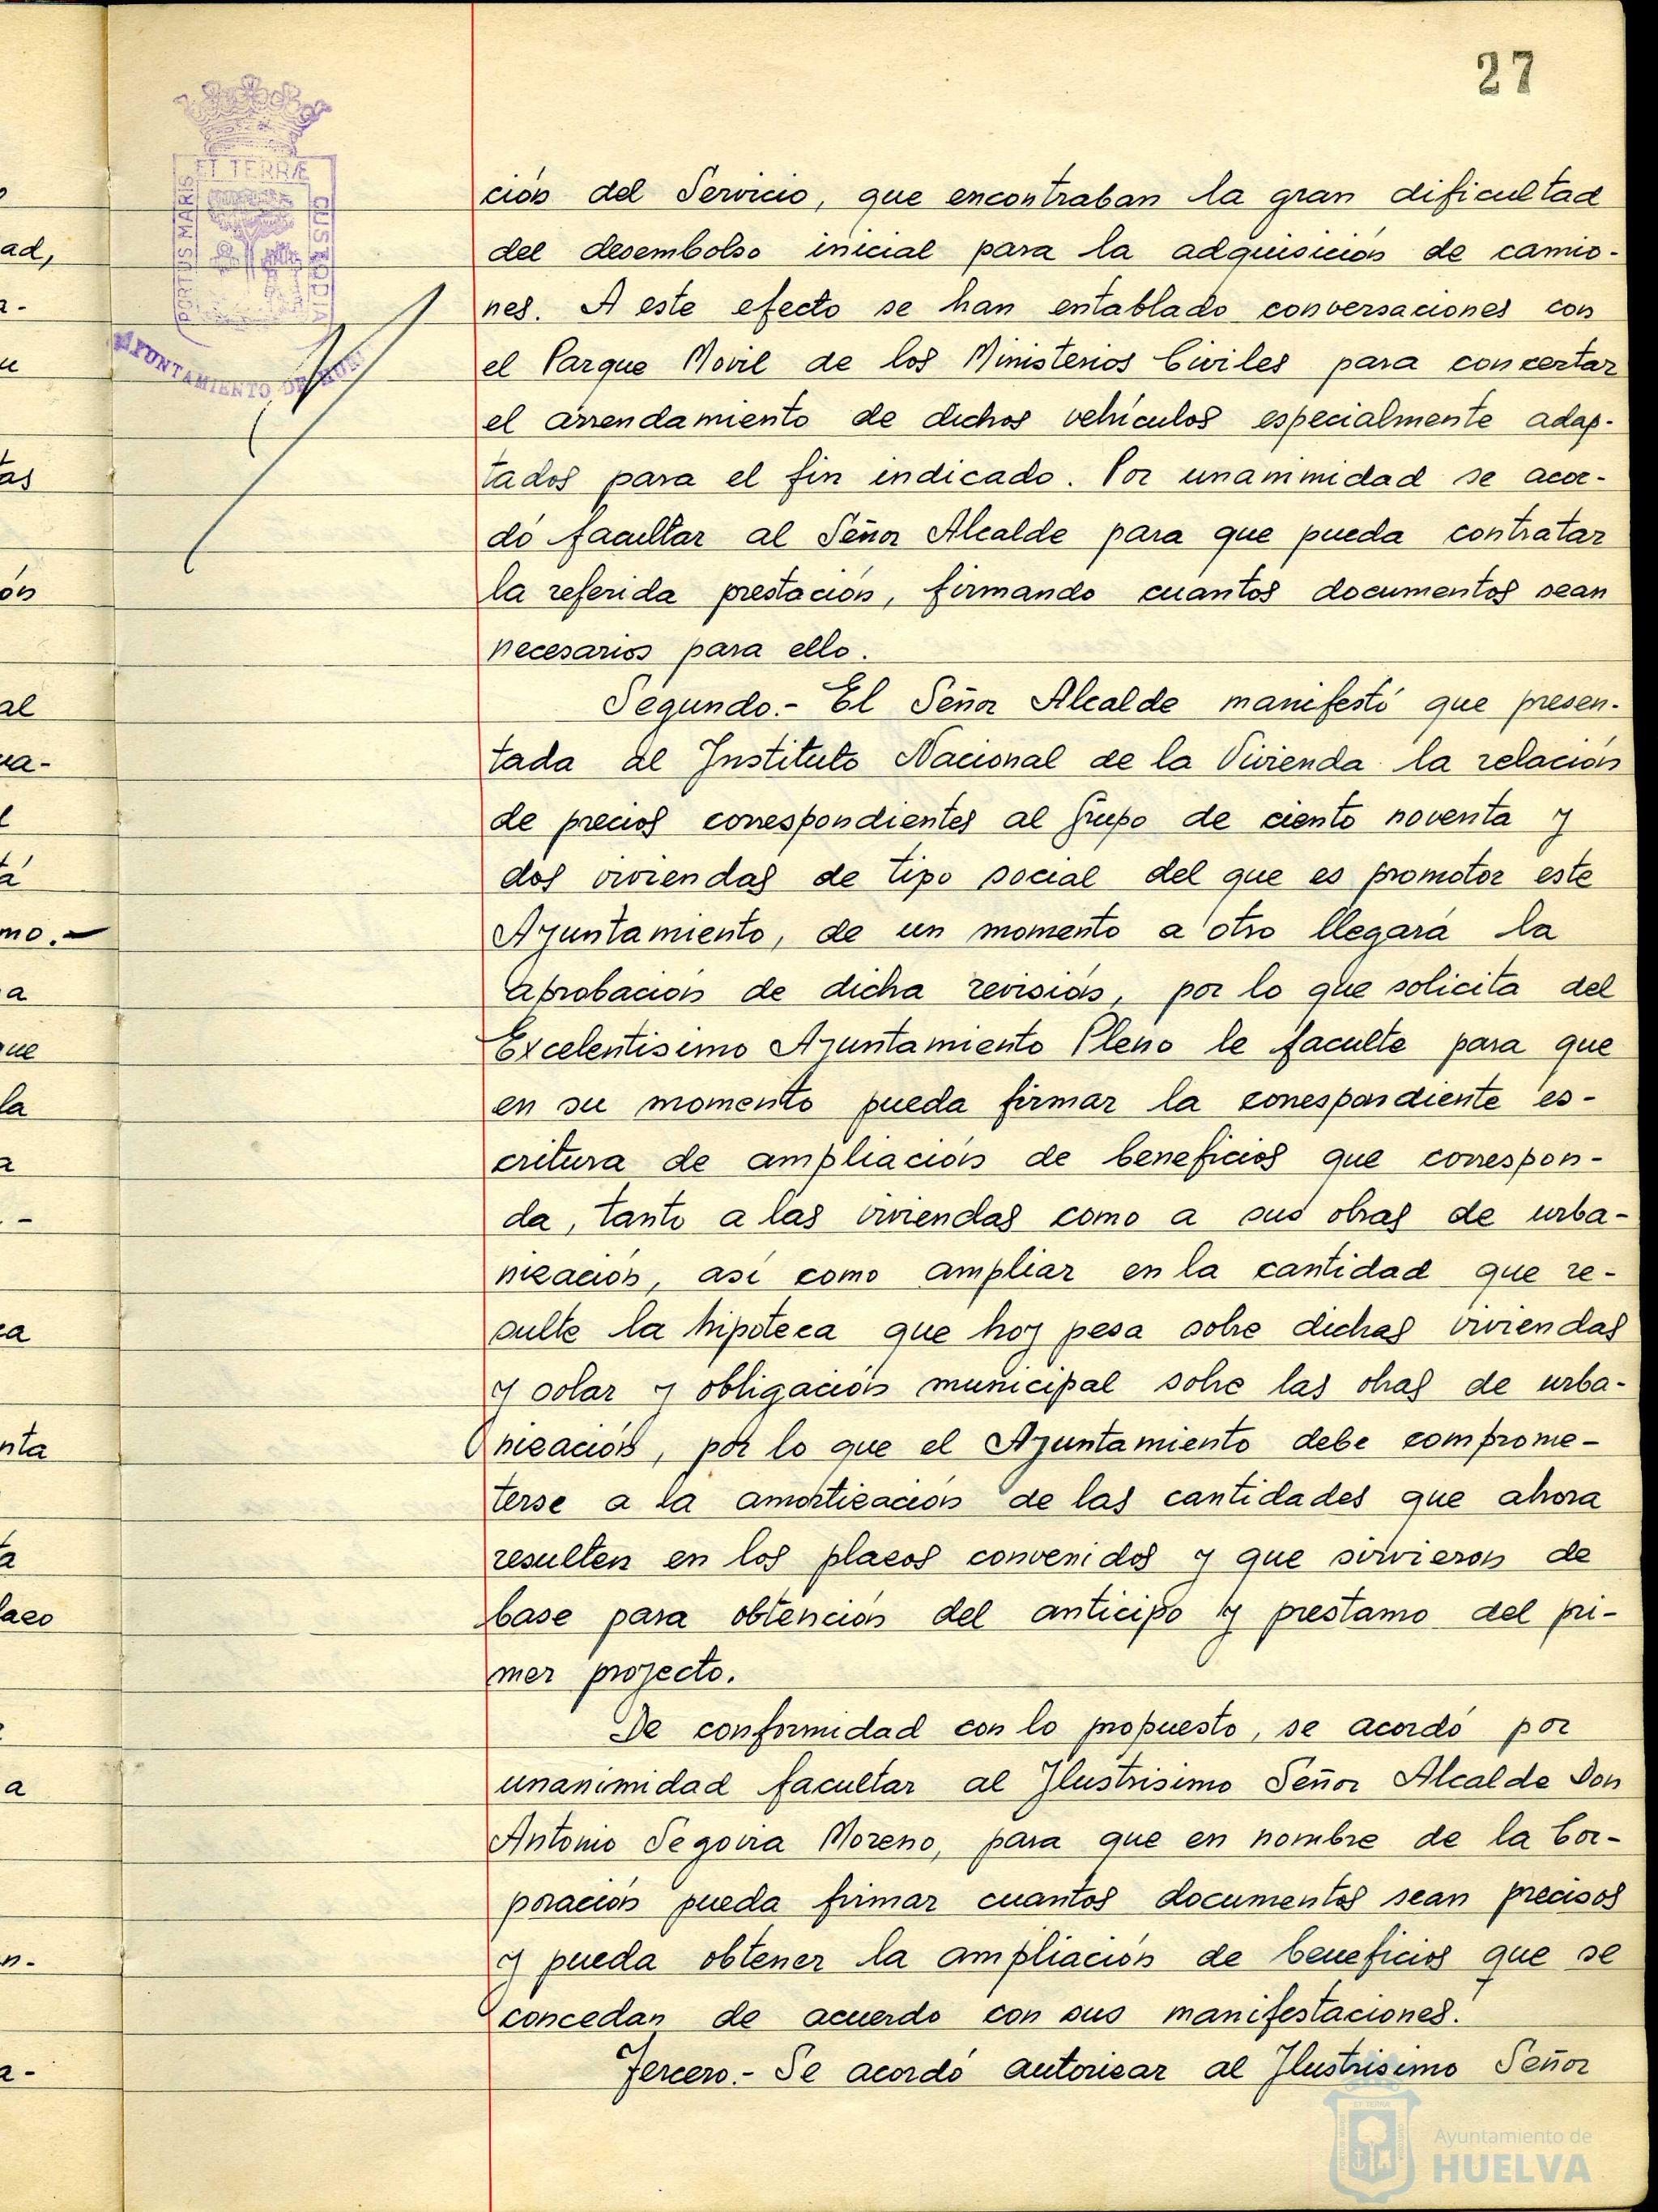 27
ET TERRÆ
PORTUS MARIS
CUSTODIA
AYUNTAMIENTO DE
ción del Servicio, que encontraban la gran dificultad
del desembolso inicial para la adquisición de camio-
nes. A este efecto se han entablado conversaciones con
el Parque Movil de los Ministerios Civiles para concertar
el arrendamiento de dichos vehículos especialmente adap-
tados para el fin indicado. Por unanimidad se acor-
dó facultar al Señor Alcalde para que pueda contratar
la referida prestación, firmando cuantos documentos sean
necesarios para ello.
Segundo.- El Señor Alcalde manifestó que presen-
tada al Instituto Nacional de la Vivienda la relación
de precios correspondientes al Grupo de ciento noventa y
dos viviendas de tipo social del que es promotor este
Ayuntamiento, de un momento a otro llegará la
aprobación de dicha revisión, por lo que solicita del
Excelentisimo Ayuntamiento Pleno le faculte para que
en su momento pueda firmar la correspondiente es-
critura de ampliación de beneficios que correspon-
da, tanto a las viviendas como a sus obras de urba-
nización, así como ampliar en la cantidad que re-
sulte la hipoteca que hoy pesa sobre dichas viviendas
y solar y obligación municipal sobre las obras de urba-
nización, por lo que el Ayuntamiento debe comprome-
terse a la amortización de las cantidades que ahora
resulten en los plazos convenidos y que sirvieron de
base para obtención del anticipo y prestamo del pri-
mer proyecto.
De conformidad con lo propuesto, se acordó por
unanimidad facultar al Ilustrisimo Señor Alcalde Don
Antonio Segovia Moreno, para que en nombre de la Cor-
poración pueda firmar cuantos documentos sean precisos
y pueda obtener la ampliación de beneficios que se
concedan de acuerdo con sus manifestaciones.
Tercero.- Se acordó autorizar al Ilustrisimo Señor
Ayuntamiento de
HUELVA